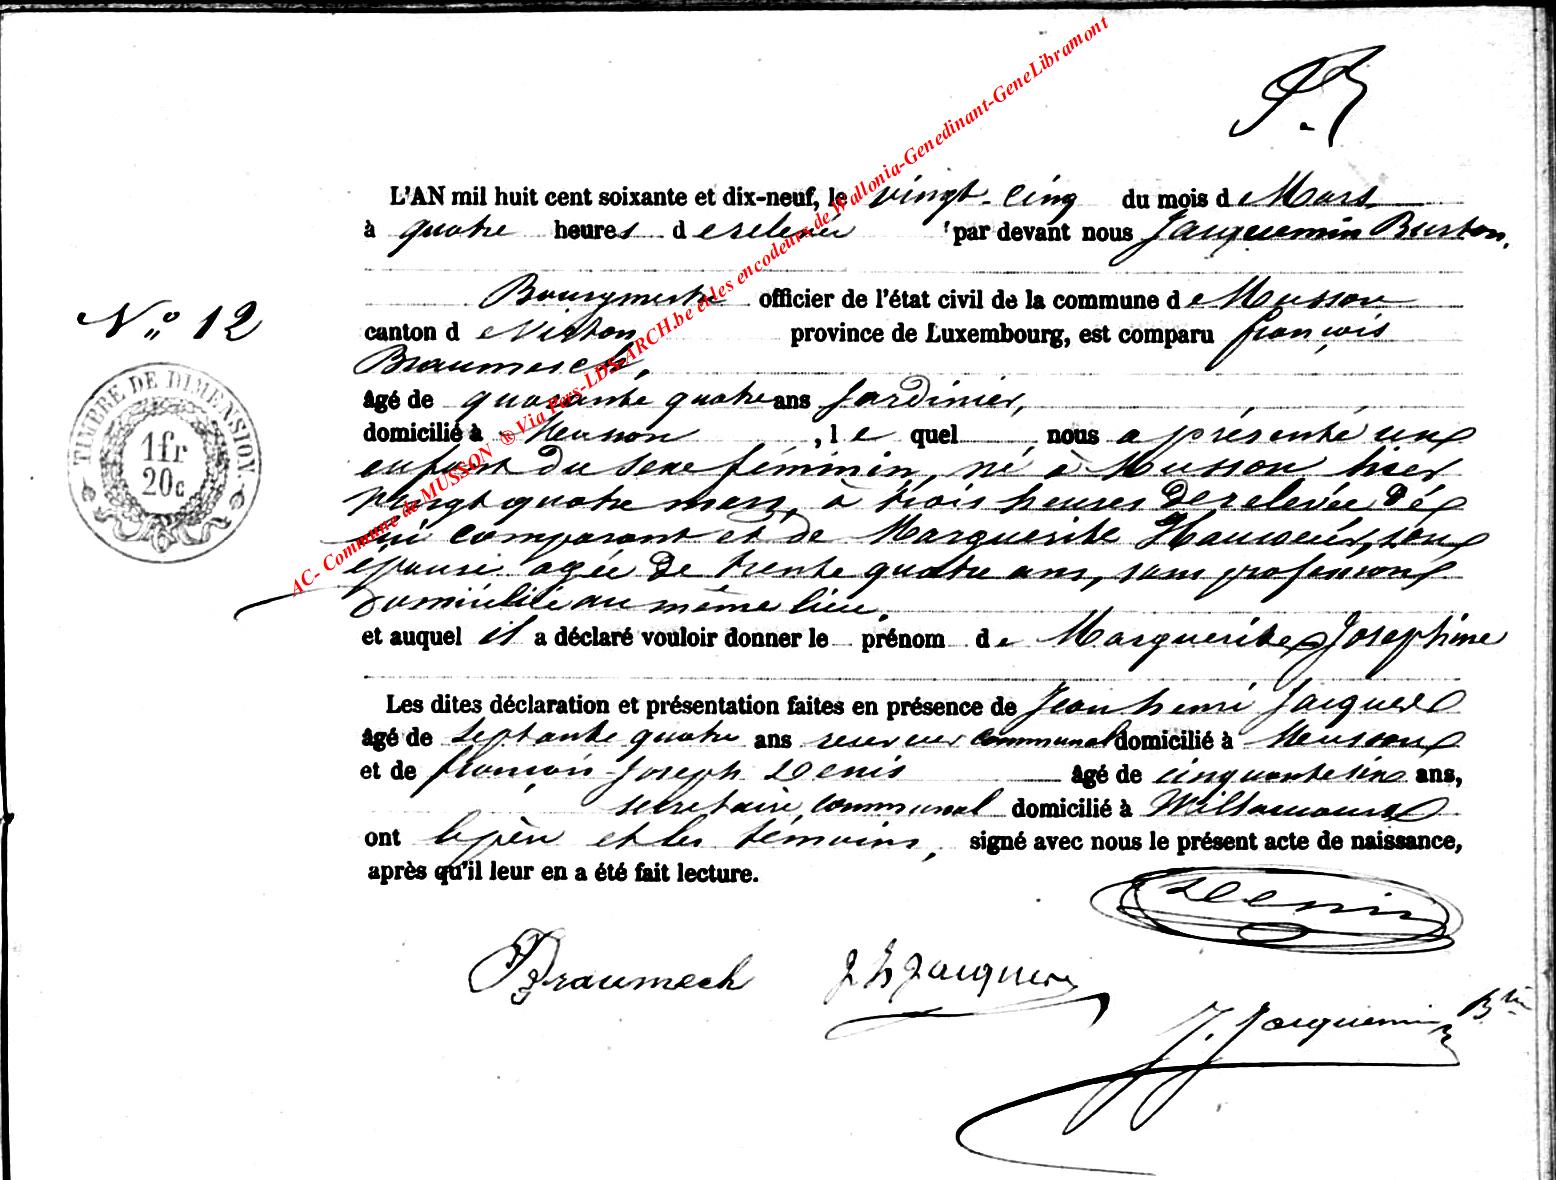 L'AN mil huit cent soixante et dix-neuf, le vingt-cinq du mois de Mars
à quatre heures de relevée par devant nous Jacquemin Burton,
Bourgmestre officier de l'état civil de la commune de Musson
N° 12
canton de Virton province de Luxembourg, est comparu françois
Braumesch,
âgé de quarante quatre ans Jardinier,
domicilié à Musson, lequel nous a présenté un
enfant du sexe féminin, né à Musson hier
vingt quatre mars, à trois heures de relevée de
lui comparant et de Marguerite son
épouse agée de trente quatre ans, sans profession
domiciliée au même lieu,
et auquel il a déclaré vouloir donner le prénom de Marguerite Josephine
Les dites déclaration et présentation faites en présence de Jean henri Jacques
âgé de septante quatre ans receveur communal domicilié à Musson
et de françois Joseph Denis âgé de cinquante six ans,
secretaire communal domicilié à
ont le père et les témoins, signé avec nous le présent acte de naissance,
après qu'il leur en a été fait lecture.
Denis
Braumech J h Jacques
J. Jacquemin Btn
TIMBRE DE DIMENSION
1fr
20c
AC- Commune de MUSSON ® Via Pers-LDS-ARCH.be et les encodeurs de Wallonia-Genedinant-GeneLibramont